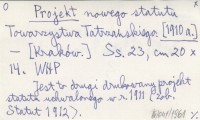 Projekt nowego statutu
Towarzystwa Tatrzańskiego, [1910 a.]
— [Kraków.] Ss. 23, cm 20 x
14. WHP
Jest to drugi drukowany projekt
statutu uchwalonego w r. 1911 (zob.
Statut 1912).